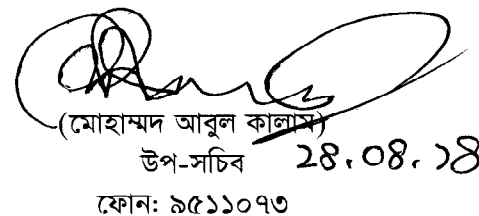 (মোহাম্মদ আবুল কালাম)
উপ-সচিব ২৪.০৪.১৪
ফোন: ৯৫১১০৭৩